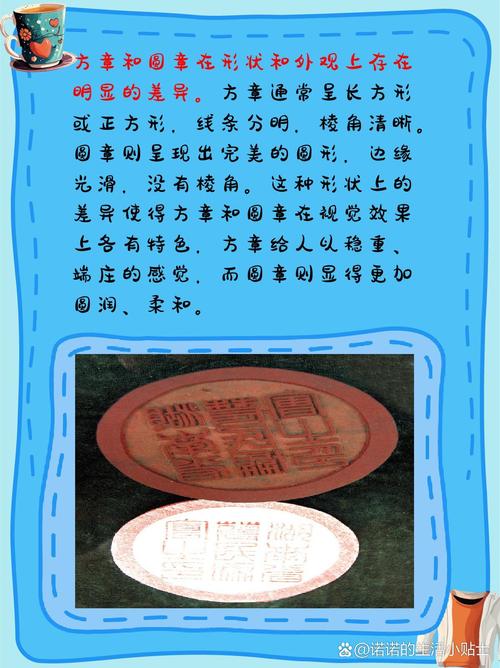 方章和圆章在形状和外观上存在
明显的差异。方章通常呈长方形
或正方形，线条分明，棱角清晰。
圆章则呈现出完美的圆形，边缘
光滑，没有棱角。这种形状上的
差异使得方章和圆章在视觉效果
上各有特色，方章给人以稳重、
端庄的感觉，而圆章则显得更加
圆润、柔和。
@诺诺的生活小贴士